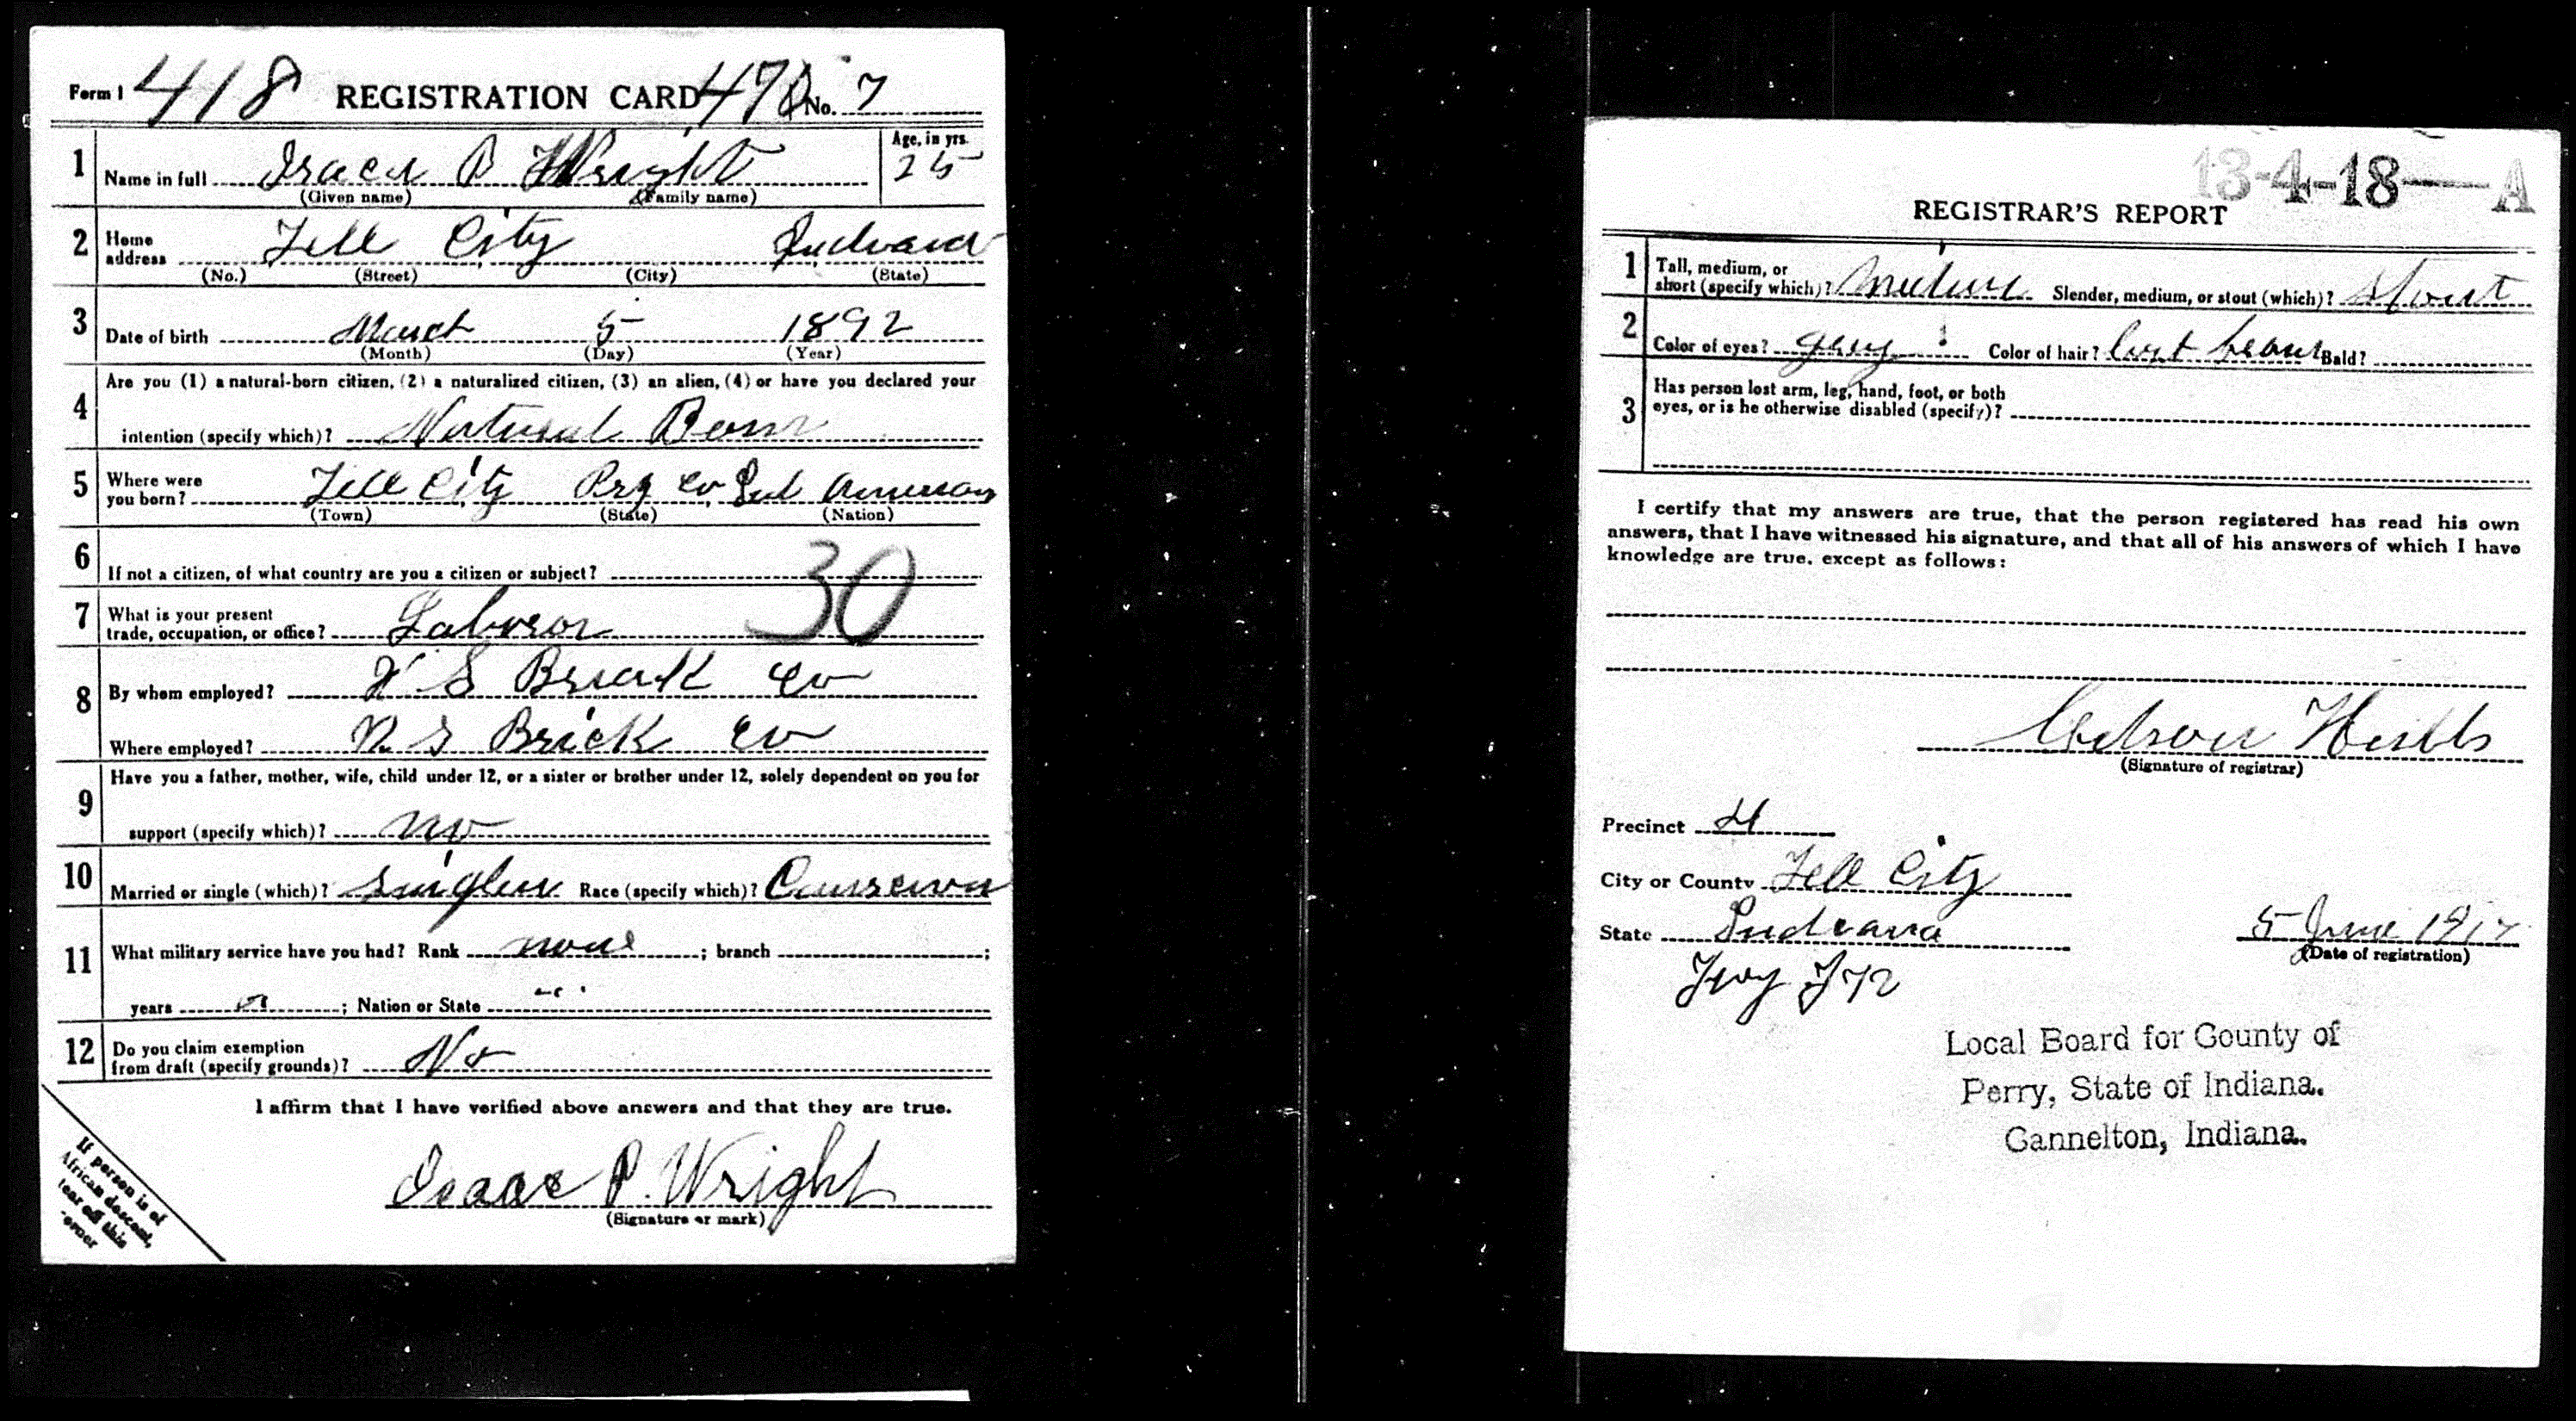 Form 1 418 REGISTRATION CARD 470 No. 7
1 Name in full Isaca P Wright Age, in yrs. 25
(Given name) (Family name)
2 Home address Tell City Indiana
(No.) (Street) (City) (State)
3 Date of birth March 5 1892
(Month) (Day) (Year)
4 Are you (1) a natural-born citizen, (2) a naturalized citizen, (3) an alien, (4) or have you declared your
intention (specify which)? Natural Born
5 Where were you born? Tell City Pry Co Ind
(Town) (State) (Nation)
6 If not a citizen, of what country are you a citizen or subject?
30
7 What is your present trade, occupation, or office? Laboror
8 By whom employed? S Brick Co
Where employed? S Brick Co
9 Have you a father, mother, wife, child under 12, or a sister or brother under 12, solely dependent on you for
support (specify which)? no
10 Married or single (which)? Race (specify which)?
11 What military service have you had? Rank none ; branch ;
years ; Nation or State
12 Do you claim exemption from draft (specify grounds)? No
I affirm that I have verified above answers and that they are true.
Isaac P. Wright
(Signature or mark)
If person is of
African descent,
tear off this
corner
13-4-18 A
REGISTRAR'S REPORT
1 Tall, medium, or short (specify which)? Slender, medium, or stout (which)? Stout
2 Color of eyes? grey Color of hair? Bald?
3 Has person lost arm, leg, hand, foot, or both
eyes, or is he otherwise disabled (specify)?
I certify that my answers are true, that the person registered has read his own
answers, that I have witnessed his signature, and that all of his answers of which I have
knowledge are true, except as follows:
(Signature of registrar)
Precinct 4
City or County Tell City
State Indiana 5 June 1917
(Date of registration)
Local Board for County of
Perry, State of Indiana.
Cannelton, Indiana.